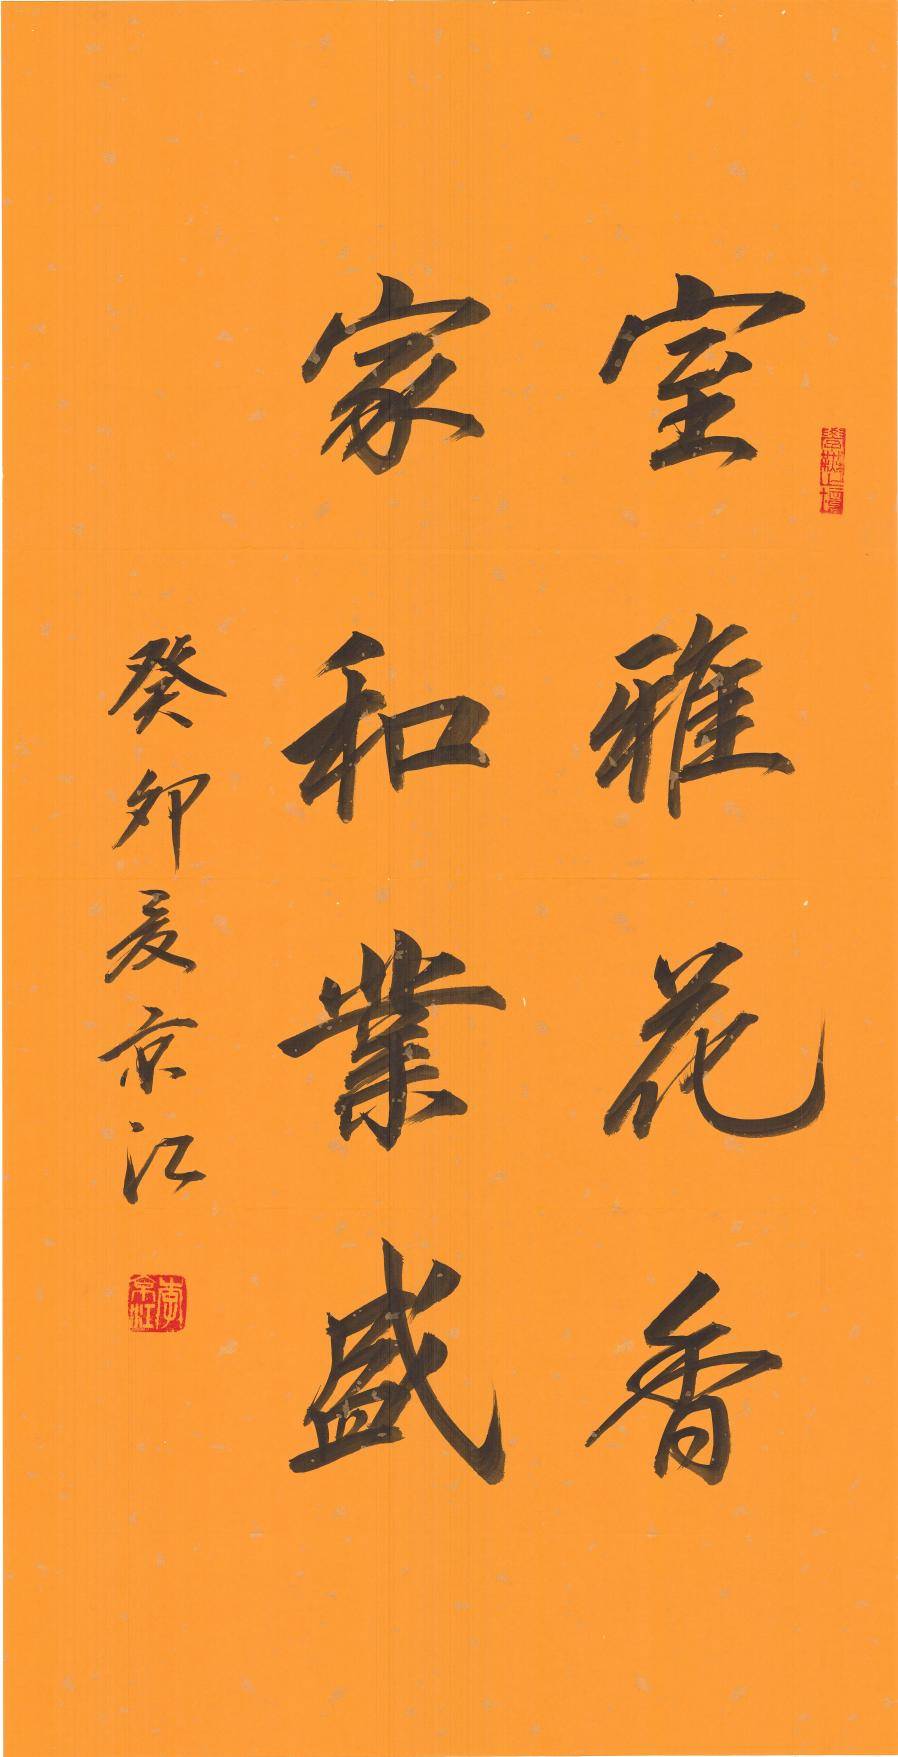 室雅花香
家和業盛
癸卯夏京江
李京江